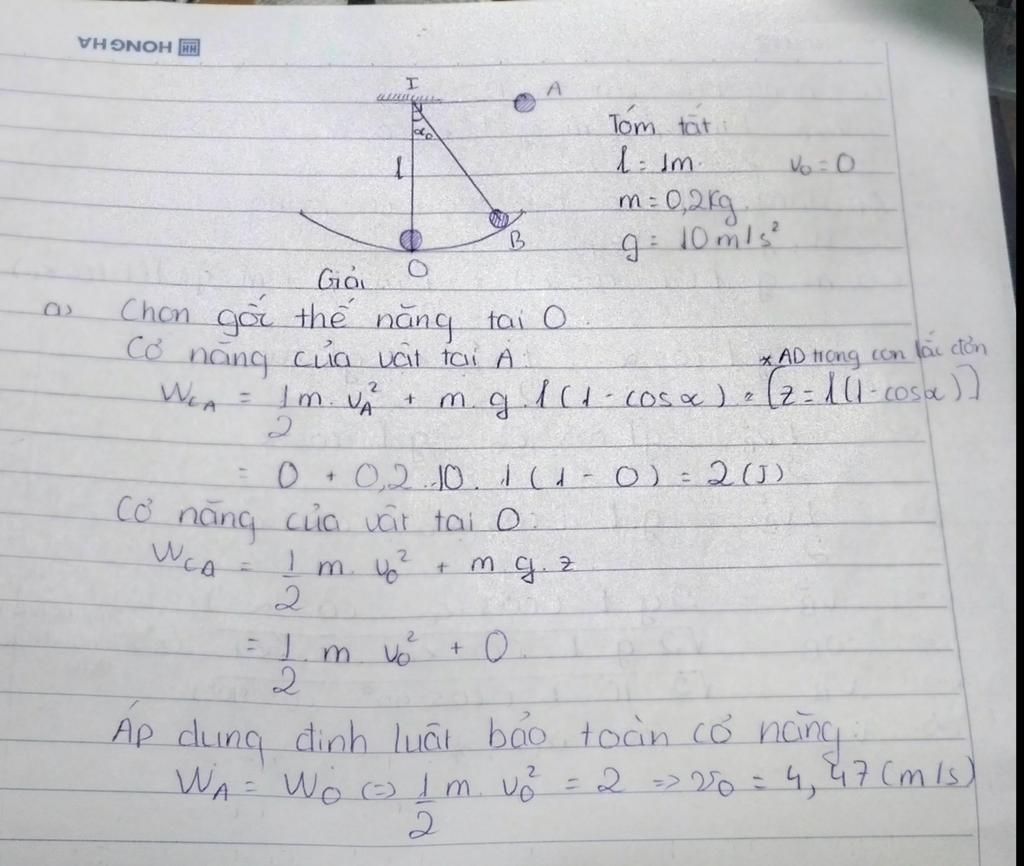 HONG HA
I
A
α₀
l
B
O
Tóm tắt:
l = 1m. v₀ = 0
m = 0,2kg
g = 10 m/s²
Giải
a) Chọn gốc thế năng tại O.
Cơ năng của vật tại A:
* AD trong con lắc đơn
W_CA = 1/2 m. v_A² + m. g. l (1 - cosα) = [z = l(1 - cosα)]
= 0 + 0,2. 10. 1 (1 - 0) = 2 (J)
Cơ năng của vật tại O:
W_CA = 1/2 m. v₀² + m g. z
= 1/2 m v₀² + 0.
Áp dụng định luật bảo toàn cơ năng:
W_A = W_O <=> 1/2 m. v₀² = 2 => v₀ = 4,47 (m/s)